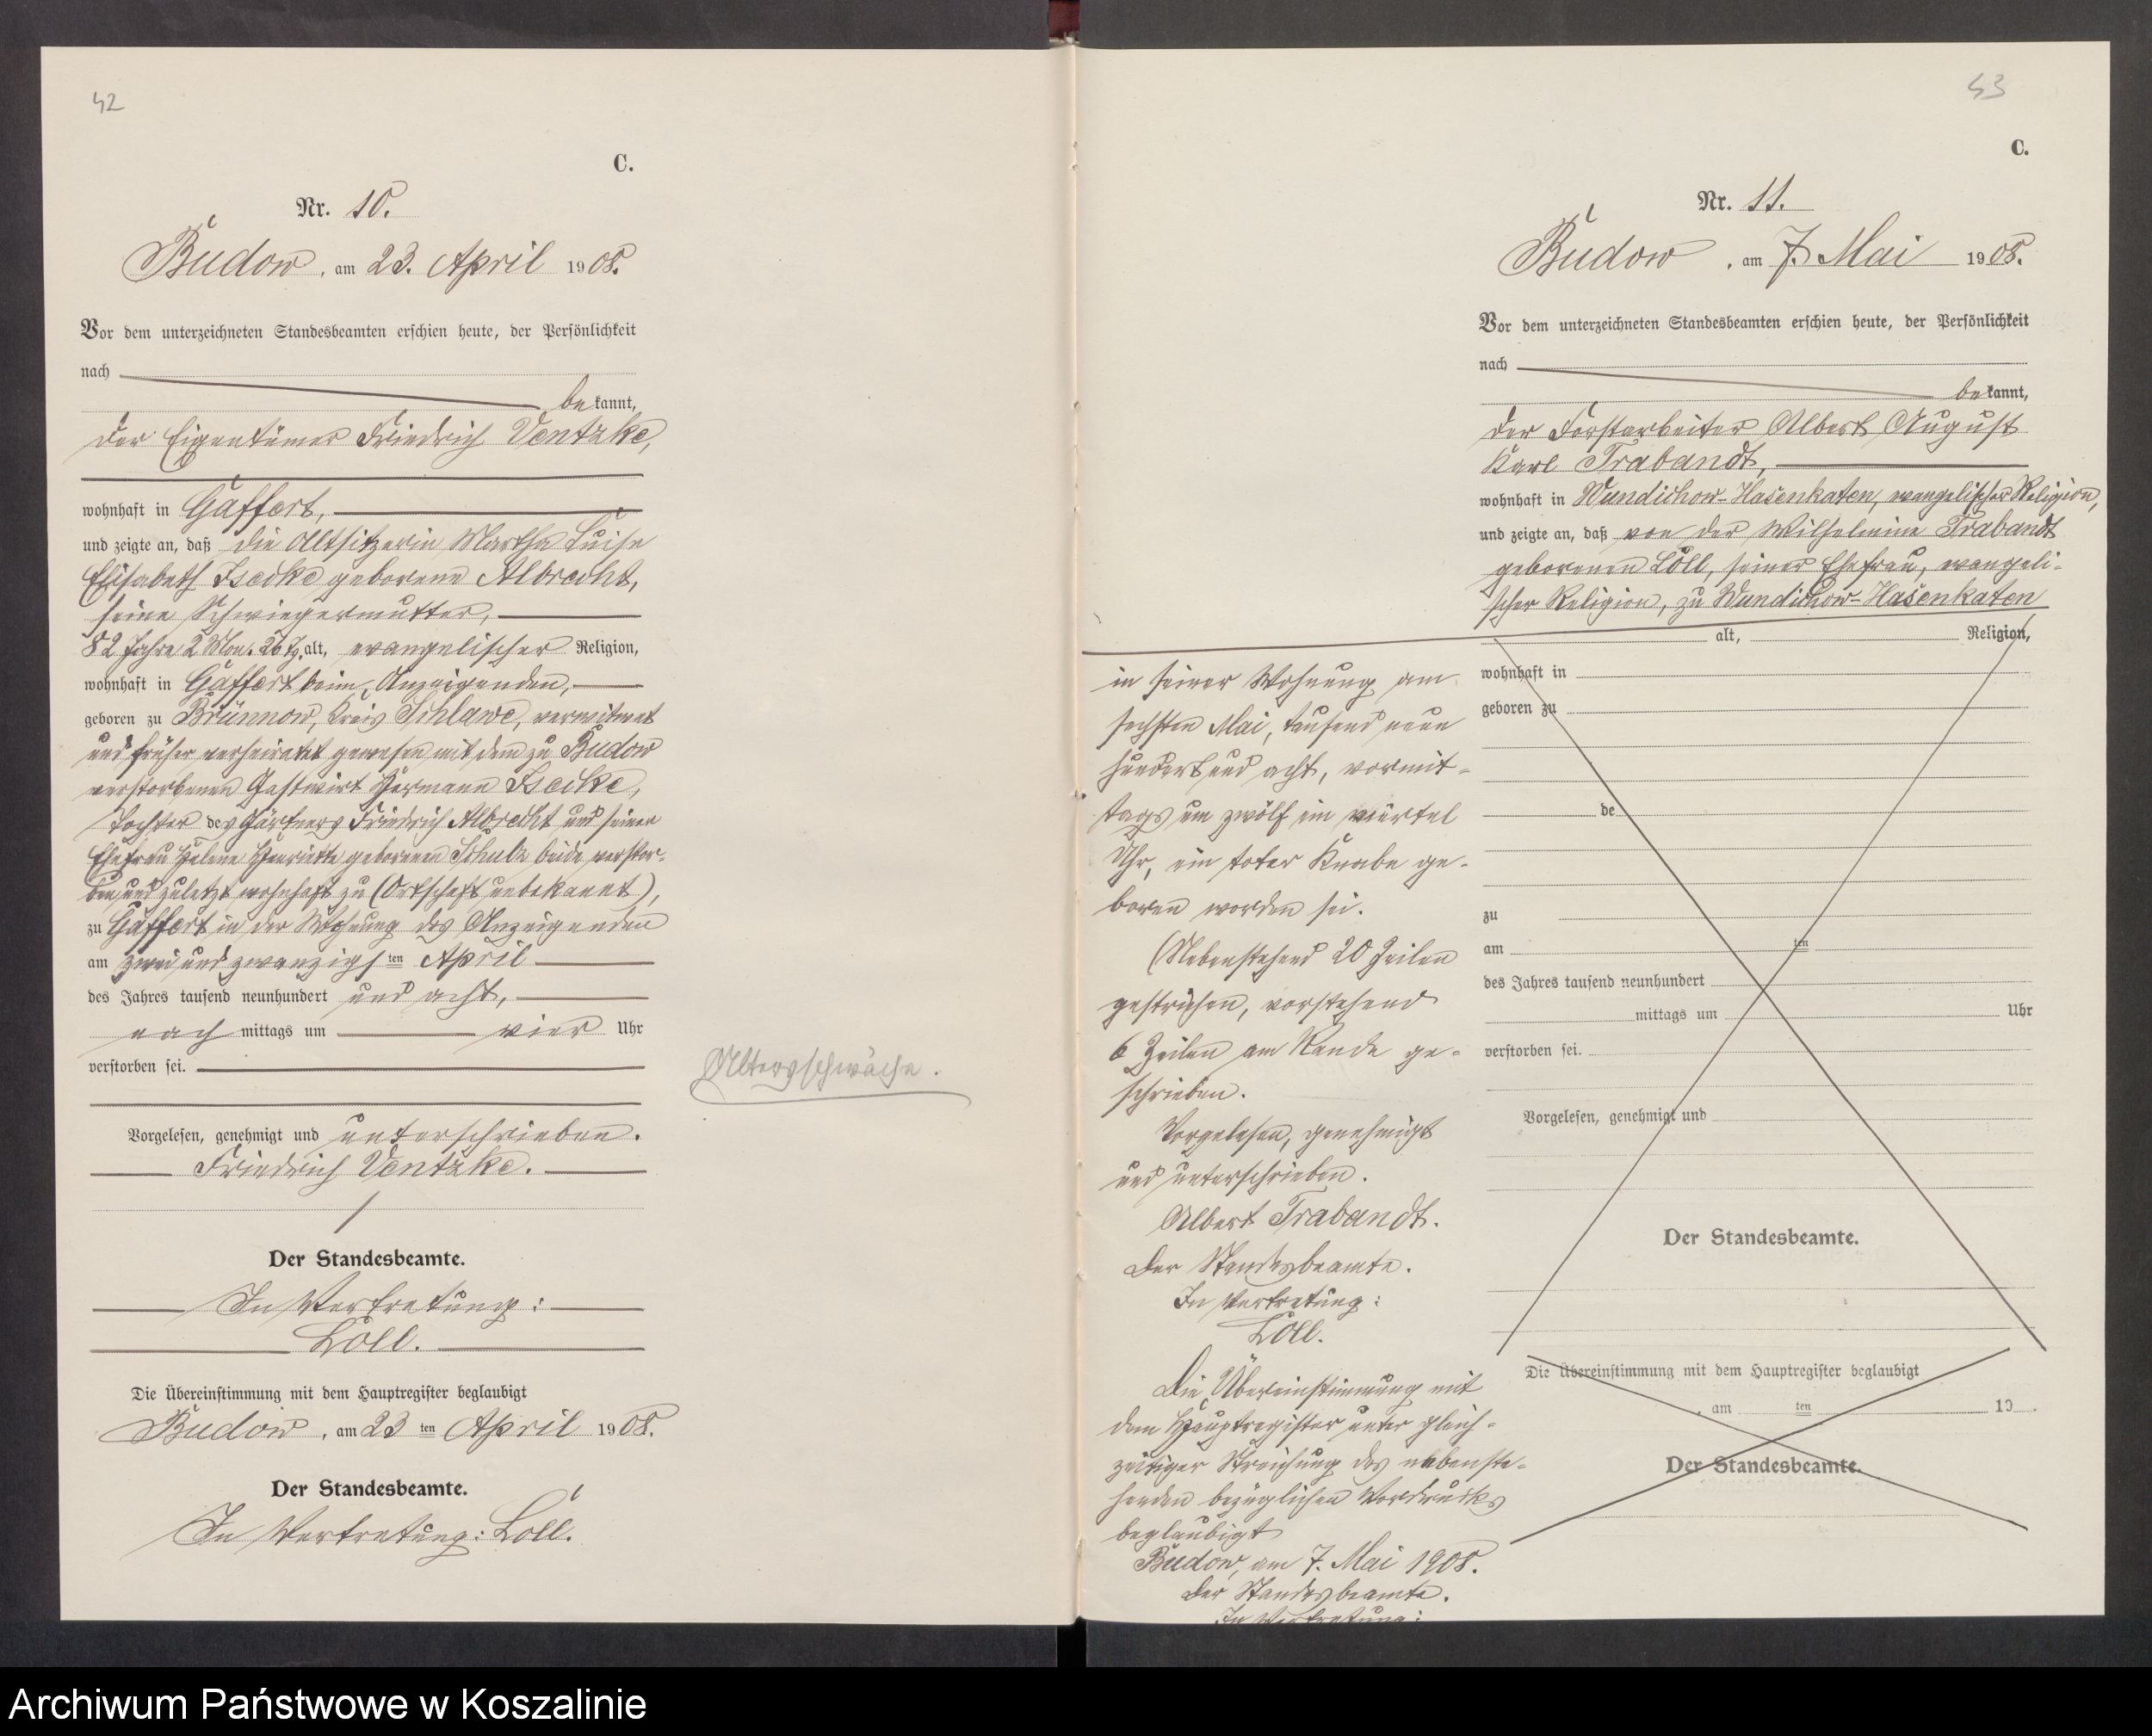 42
C.
Nr. 10.
Budow, am 23. April 1908.
Vor dem unterzeichneten Standesbeamten erschien heute, der Persönlichkeit
nach
bekannt,
der Eigentümer Friedrich Ventzke,
wohnhaft in Gaffert,
und zeigte an, daß die Altsitzerin Martha Luise
Elisabeth Isecke geborene Albrecht,
seine Schwiegermutter,
82 Jahre 2 Mon. 26 Tg. alt, evangelischer Religion,
wohnhaft in Gaffert beim Anzeigenden,
geboren zu Brünnow, Kreis Schlawe, verwitwet
und früher verheiratet gewesen mit dem zu Budow
verstorbenen Gastwirt Hermann Isecke,
Tochter des Gärtners Friedrich Albrecht und seiner
Ehefrau Helene Henriette geborenen Schulz beide verstor-
ben und zuletzt wohnhaft zu (Ortschaft unbekannt),
zu Gaffert in der Wohnung des Anzeigenden
am zwei und zwanzigsten April
des Jahres tausend neunhundert und acht,
nachmittags um vier Uhr
verstorben sei.
Altersschwäche.
Vorgelesen, genehmigt und unterschrieben.
Friedrich Ventzke.
Der Standesbeamte.
In Vertretung:
Loll.
Die Übereinstimmung mit dem Hauptregister beglaubigt
Budow, am 23 ten April 1908.
Der Standesbeamte.
In Vertretung: Loll.
43
C.
Nr. 11.
Budow, am 7. Mai 1908.
Vor dem unterzeichneten Standesbeamten erschien heute, der Persönlichkeit
nach
bekannt,
der Forstarbeiter Albert August
Karl Trabandt,
wohnhaft in Wundichow-Hasenkaten, evangelischer Religion,
und zeigte an, daß von der Wilhelmine Trabandt
geborenen Loll, seiner Ehefrau, evangeli-
scher Religion, zu Wundichow-Hasenkaten
in seiner Wohnung am
sechsten Mai, tausend neun
hundert und acht, vormit-
tags um zwölf ein viertel
Uhr, ein toter Knabe ge-
boren worden sei.
(Nebenstehend 20 Zeilen
gestrichen, vorstehend
6 Zeilen am Rande ge-
schrieben.
Vorgelesen, genehmigt
und unterschrieben.
Albert Trabandt.
Der Standesbeamte.
In Vertretung:
Loll.
Die Übereinstimmung mit
dem Hauptregister unter gleich-
zeitiger Streichung des nebenste-
henden bezüglichen Vordrucks
beglaubigt
Budow, am 7. Mai 1908.
Der Standesbeamte.
In Vertretung:
alt, Religion,
wohnhaft in
geboren zu
de
zu
am ten
des Jahres tausend neunhundert
mittags um Uhr
verstorben sei.
Vorgelesen, genehmigt und
Der Standesbeamte.
Die Übereinstimmung mit dem Hauptregister beglaubigt
, am ten 19 .
Der Standesbeamte.
Archiwum Państwowe w Koszalinie